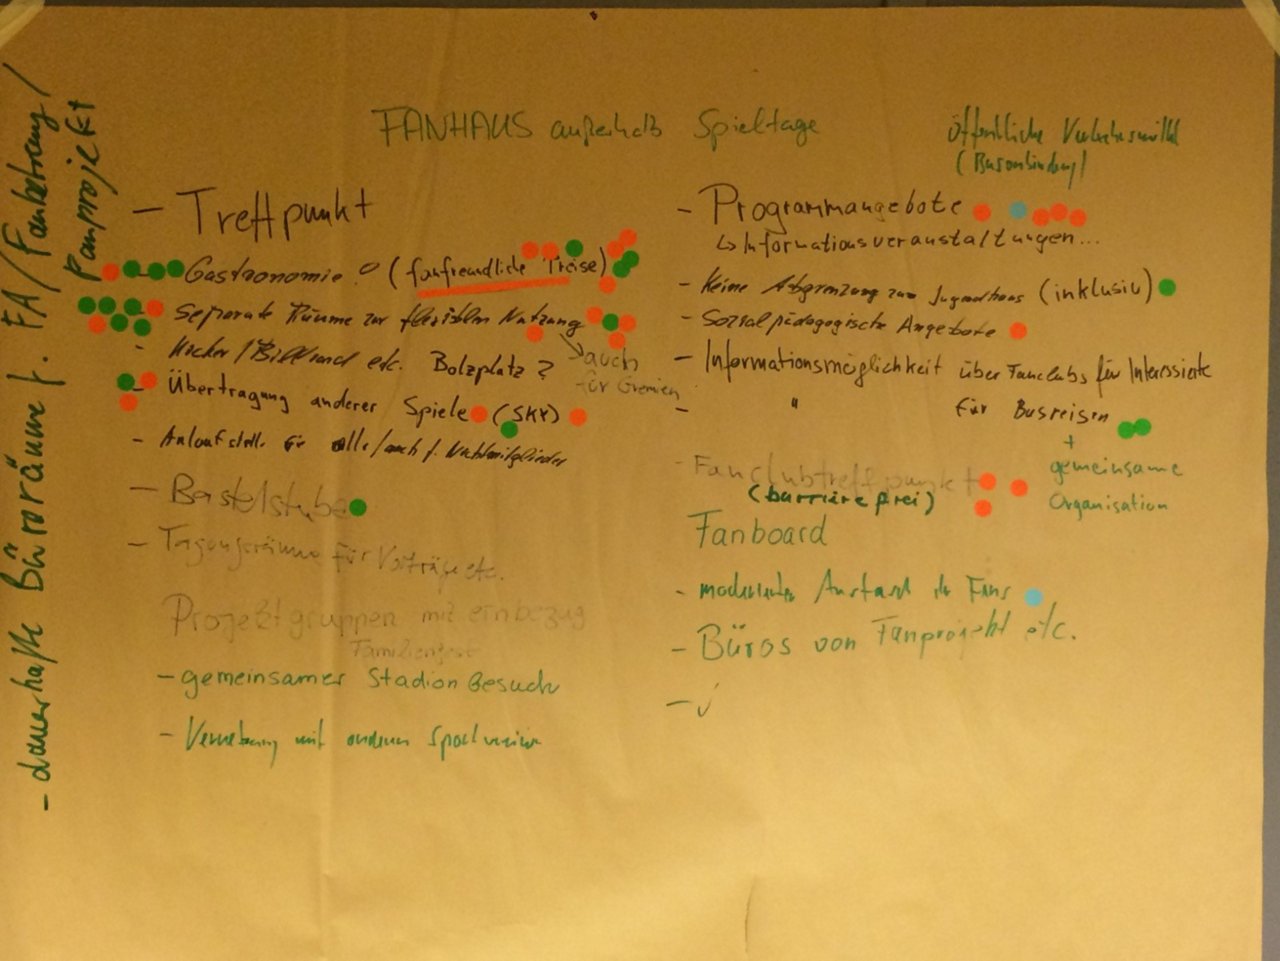 - dauerhafte Büroräume f. FA/Fanbetreuung/
Fanprojekt
FANHAUS außerhalb Spieltage
öffentliche Verkehrsmittel
(Busanbindung)
- Treffpunkt
- Gastronomie! (fanfreundliche Preise)
- Separate Räume zur flexiblen Nutzung
→ auch
für Gremien
- Kicker/Billard etc. Bolzplatz?
- Übertragung anderer Spiele (SKY)
- Anlaufstelle für alle/auch f. Nichtmitglieder
- Bastelstube
- Tagungsräume für Vorträge etc.
Projektgruppen mit einbezug
Familienfest
- gemeinsamer Stadion Besuch
- Vernetzung mit anderen Sportvereinen
- Programmangebote
↳ Informationsveranstaltungen...
- Keine Abgrenzung zum Jugendhaus (inklusiv)
- Sozialpädagogische Angebote
- Informationsmöglichkeit über Fanclubs für Interessierte
- " für Busreisen
+
gemeinsame
Organisation
- Fanclubtreffpunkt
(barrierefrei)
Fanboard
- moderierter der Fans
- Büros von Fanprojekt etc.
- √